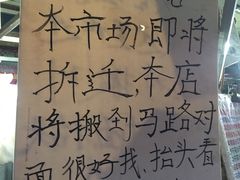 本市场即将
拆迁,本店
将搬到马路对
面,很好找,抬头看